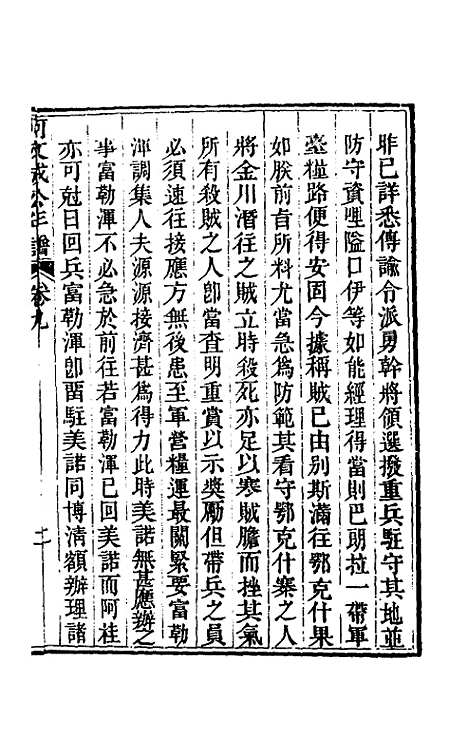 昨已詳悉傳諭令派勇幹將領選撥重兵駐守其地並
防守資哩隘口伊等如能經理得當則巴朗拉一帶軍
臺糧路便得安固今據稱賊已由别斯滿往鄂克什果
如朕前旨所料尤當急為防範其看守鄂克什寨之人
將金川潛往之賊立時殺死亦足以寒賊膽而挫其氣
所有殺賊之人卽當查明重賞以示獎勵但帶兵之員
必須速往接應方無後患至軍營糧運最關緊要富勒
渾調集人夫源源接濟甚為得力此時美諾無甚應辦之
事富勒渾不必急於前往若富勒渾已回美諾而阿桂
亦可尅日回兵富勒渾卽畱駐美諾同博清額辦理諸
文成公年譜 卷九